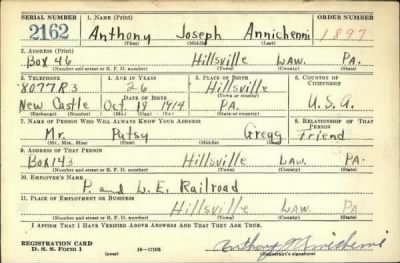 SERIAL NUMBER 1. NAME (Print) ORDER NUMBER
2162 Anthony Joseph Annichenni 1897
(First) (Middle) (Last)
2. ADDRESS (Print)
Box 46 Hillsville LAW. PA.
(Number and street or R. F. D. number) (Town) (County) (State)
3. TELEPHONE 4. AGE IN YEARS 5. PLACE OF BIRTH 6. COUNTRY OF CITIZENSHIP
8077R3 26 Hillsville
DATE OF BIRTH (Town or county)
New Castle Oct 19 1914 PA. U.S.A.
(Exchange) (Number) (Mo.) (Day) (Yr.) (State or country)
7. NAME OF PERSON WHO WILL ALWAYS KNOW YOUR ADDRESS 8. RELATIONSHIP OF THAT PERSON
Mr. Patsy Gregg friend
(Mr., Mrs., Miss) (First) (Middle) (Last)
9. ADDRESS OF THAT PERSON
Box 143 Hillsville Law. PA.
(Number and street or R. F. D. number) (Town) (County) (State)
10. EMPLOYER'S NAME
P. and L. E. Railroad
11. PLACE OF EMPLOYMENT OR BUSINESS
Hillsville LAW. PA.
(Number and street or R. F. D. number) (Town) (County) (State)
I AFFIRM THAT I HAVE VERIFIED ABOVE ANSWERS AND THAT THEY ARE TRUE.
REGISTRATION CARD
D. S. S. Form 1 (over) 16—17105 (Registrant's signature)